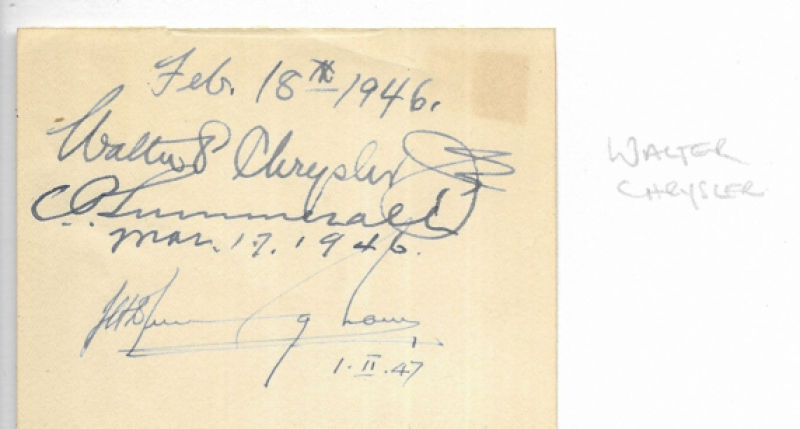 Feb. 18th 1946.
Walter P Chrysler Jr
C.P. Summerall
Mar. 17. 1946.
1·II·47
WALTER
CHRYSLER